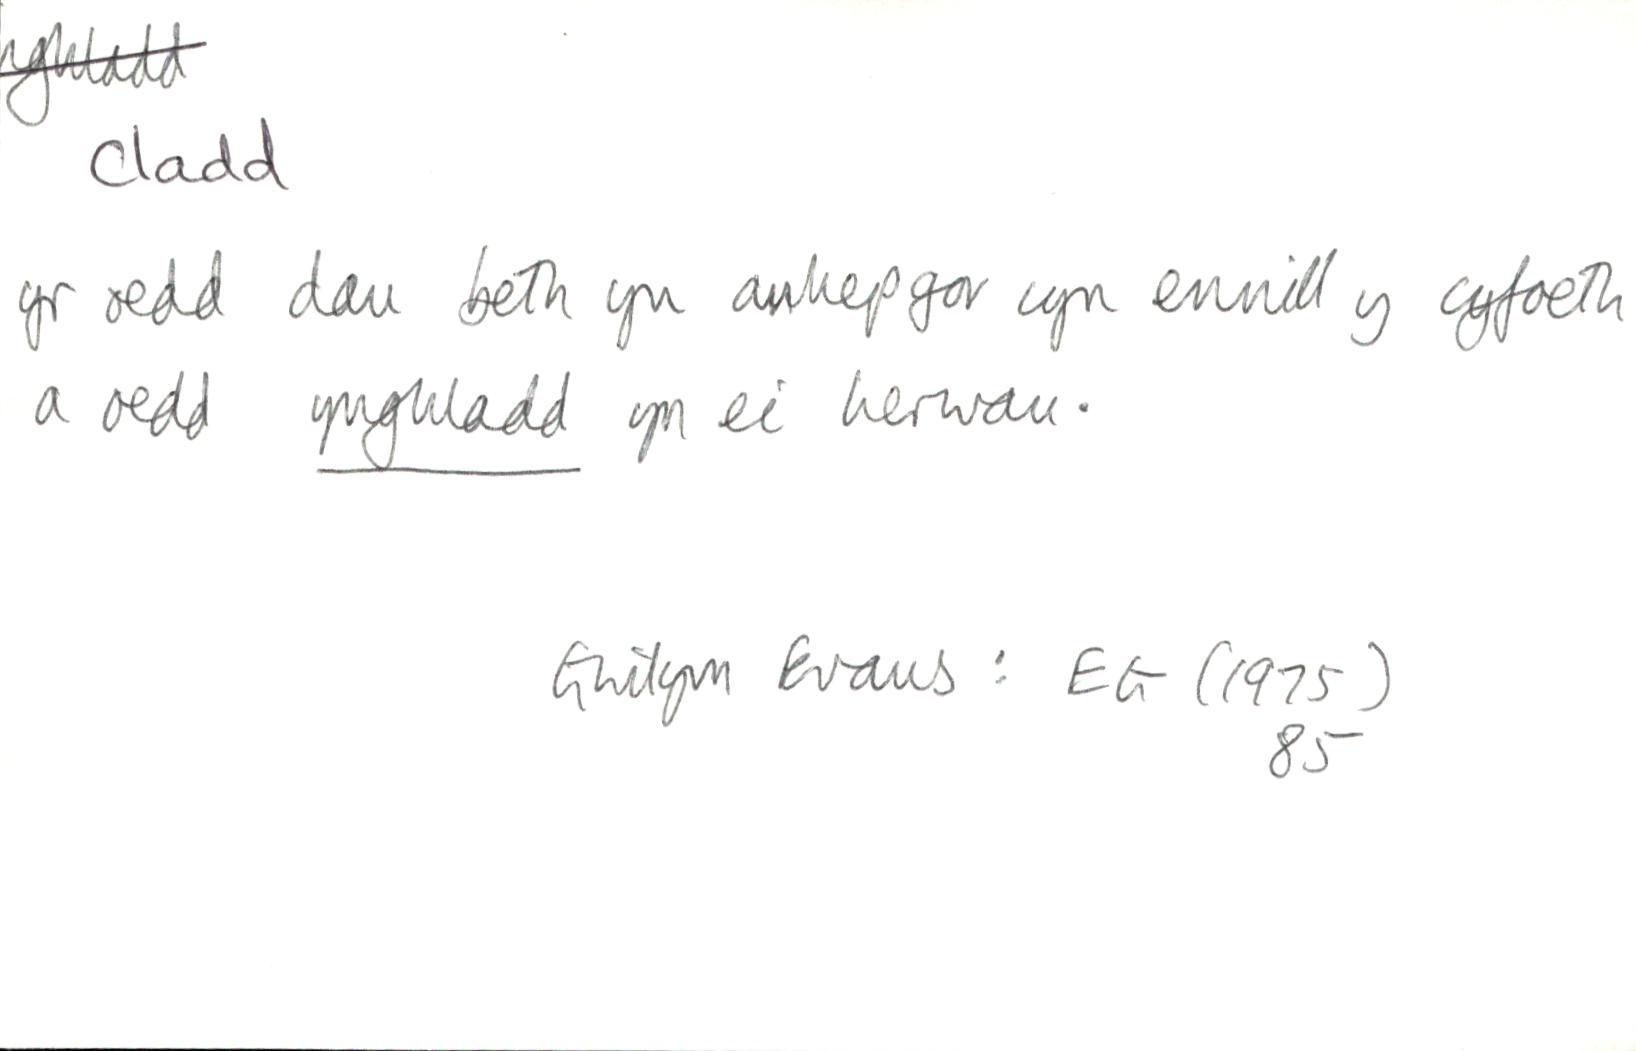 ~~nghladd~~
Cladd
yr oedd dau beth yn anhepgor cyn ennill y cyfoeth
a oedd ynghladd yn ei herwau.
Gwilym Evans : EG (1975)
85